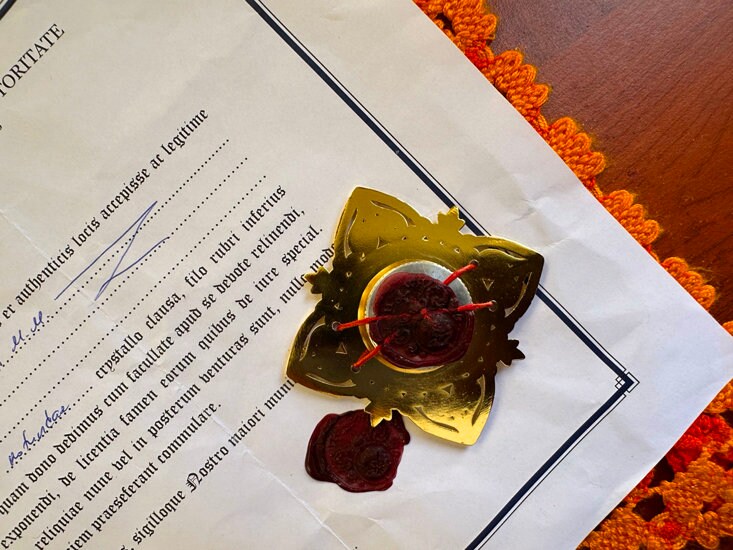 TORITATE
er authenticis locis accepisse ac legitime
M. M.
crystallo clausa, filo rubri inferius
quam dono dedimus cum facultate apud se devote relinendi,
exponendi, de licentia tamen eorum quibus de iure special.
reliquiae nunc vel in posterum venturas sunt, nullo modo
iem praeseferant commulare.
sigilloque Nostro maiori muni